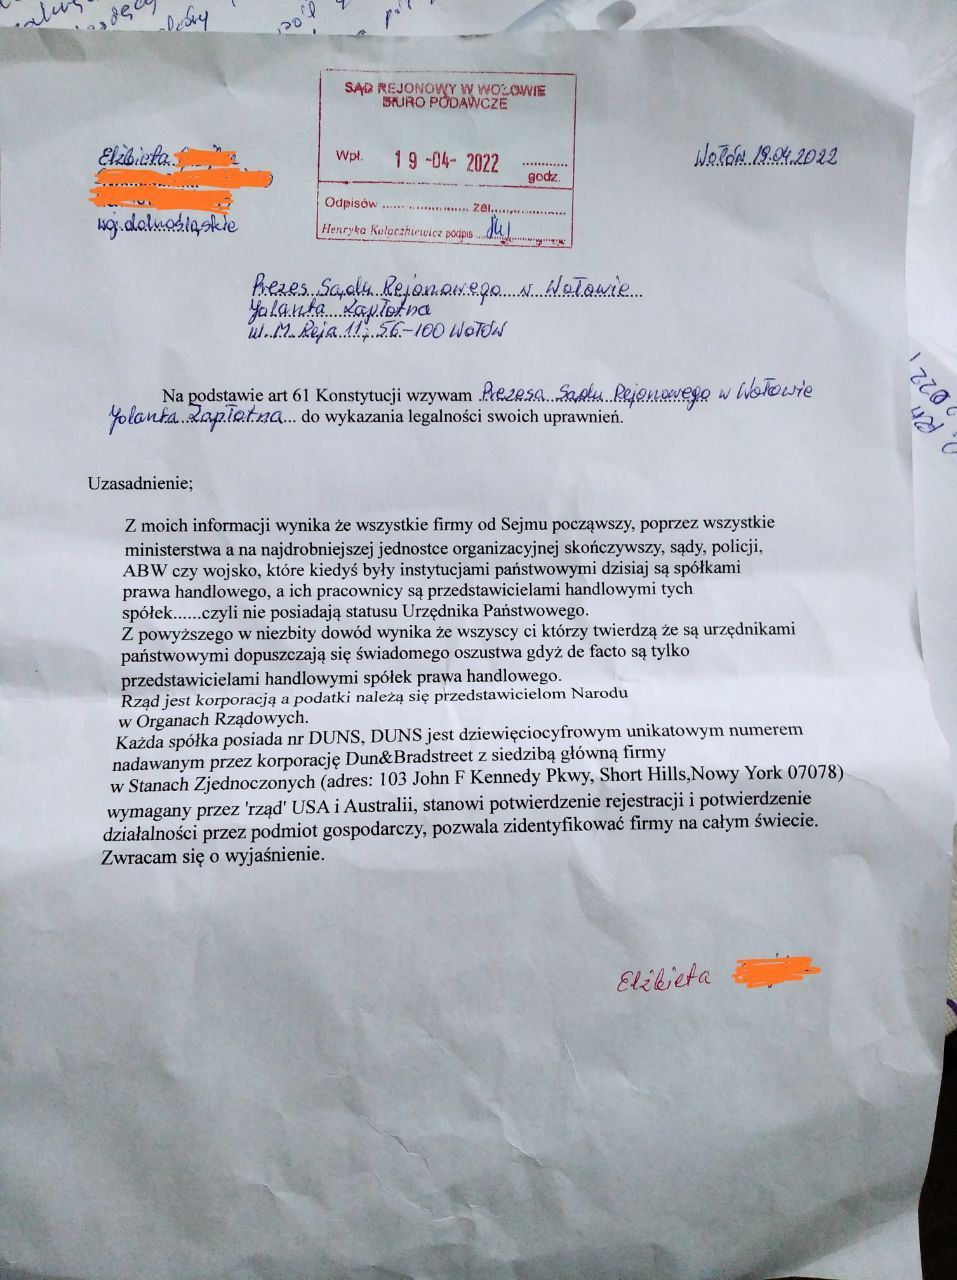 SĄD REJONOWY W WOŁOWIE
BIURO PODAWCZE
Wpł. 19-04-2022 ............
godz.
Odpisów ...... .................. zał.....................
Henryka Kołaczkiewicz podpis
Elżbieta
woj. dolnośląskie
Wołów 19.04.2022
Prezes Sądu Rejonowego w Wołowie
Yolanta Zapłotna
ul. M. Reja 11; 56-100 Wołów
Na podstawie art 61 Konstytucji wzywam Prezesa Sądu Rejonowego w Wołowie
Yolanta Zapłotna... do wykazania legalności swoich uprawnień.
Uzasadnienie;
Z moich informacji wynika że wszystkie firmy od Sejmu począwszy, poprzez wszystkie
ministerstwa a na najdrobniejszej jednostce organizacyjnej skończywszy, sądy, policji,
ABW czy wojsko, które kiedyś były instytucjami państwowymi dzisiaj są spółkami
prawa handlowego, a ich pracownicy są przedstawicielami handlowymi tych
spółek......czyli nie posiadają statusu Urzędnika Państwowego.
Z powyższego w niezbity dowód wynika że wszyscy ci którzy twierdzą że są urzędnikami
państwowymi dopuszczają się świadomego oszustwa gdyż de facto są tylko
przedstawicielami handlowymi spółek prawa handlowego.
Rząd jest korporacją a podatki należą się przedstawicielom Narodu
w Organach Rządowych.
Każda spółka posiada nr DUNS, DUNS jest dziewięciocyfrowym unikatowym numerem
nadawanym przez korporację Dun&Bradstreet z siedzibą główną firmy
w Stanach Zjednoczonych (adres: 103 John F Kennedy Pkwy, Short Hills,Nowy York 07078)
wymagany przez 'rząd' USA i Australii, stanowi potwierdzenie rejestracji i potwierdzenie
działalności przez podmiot gospodarczy, pozwala zidentyfikować firmy na całym świecie.
Zwracam się o wyjaśnienie.
Elżbieta